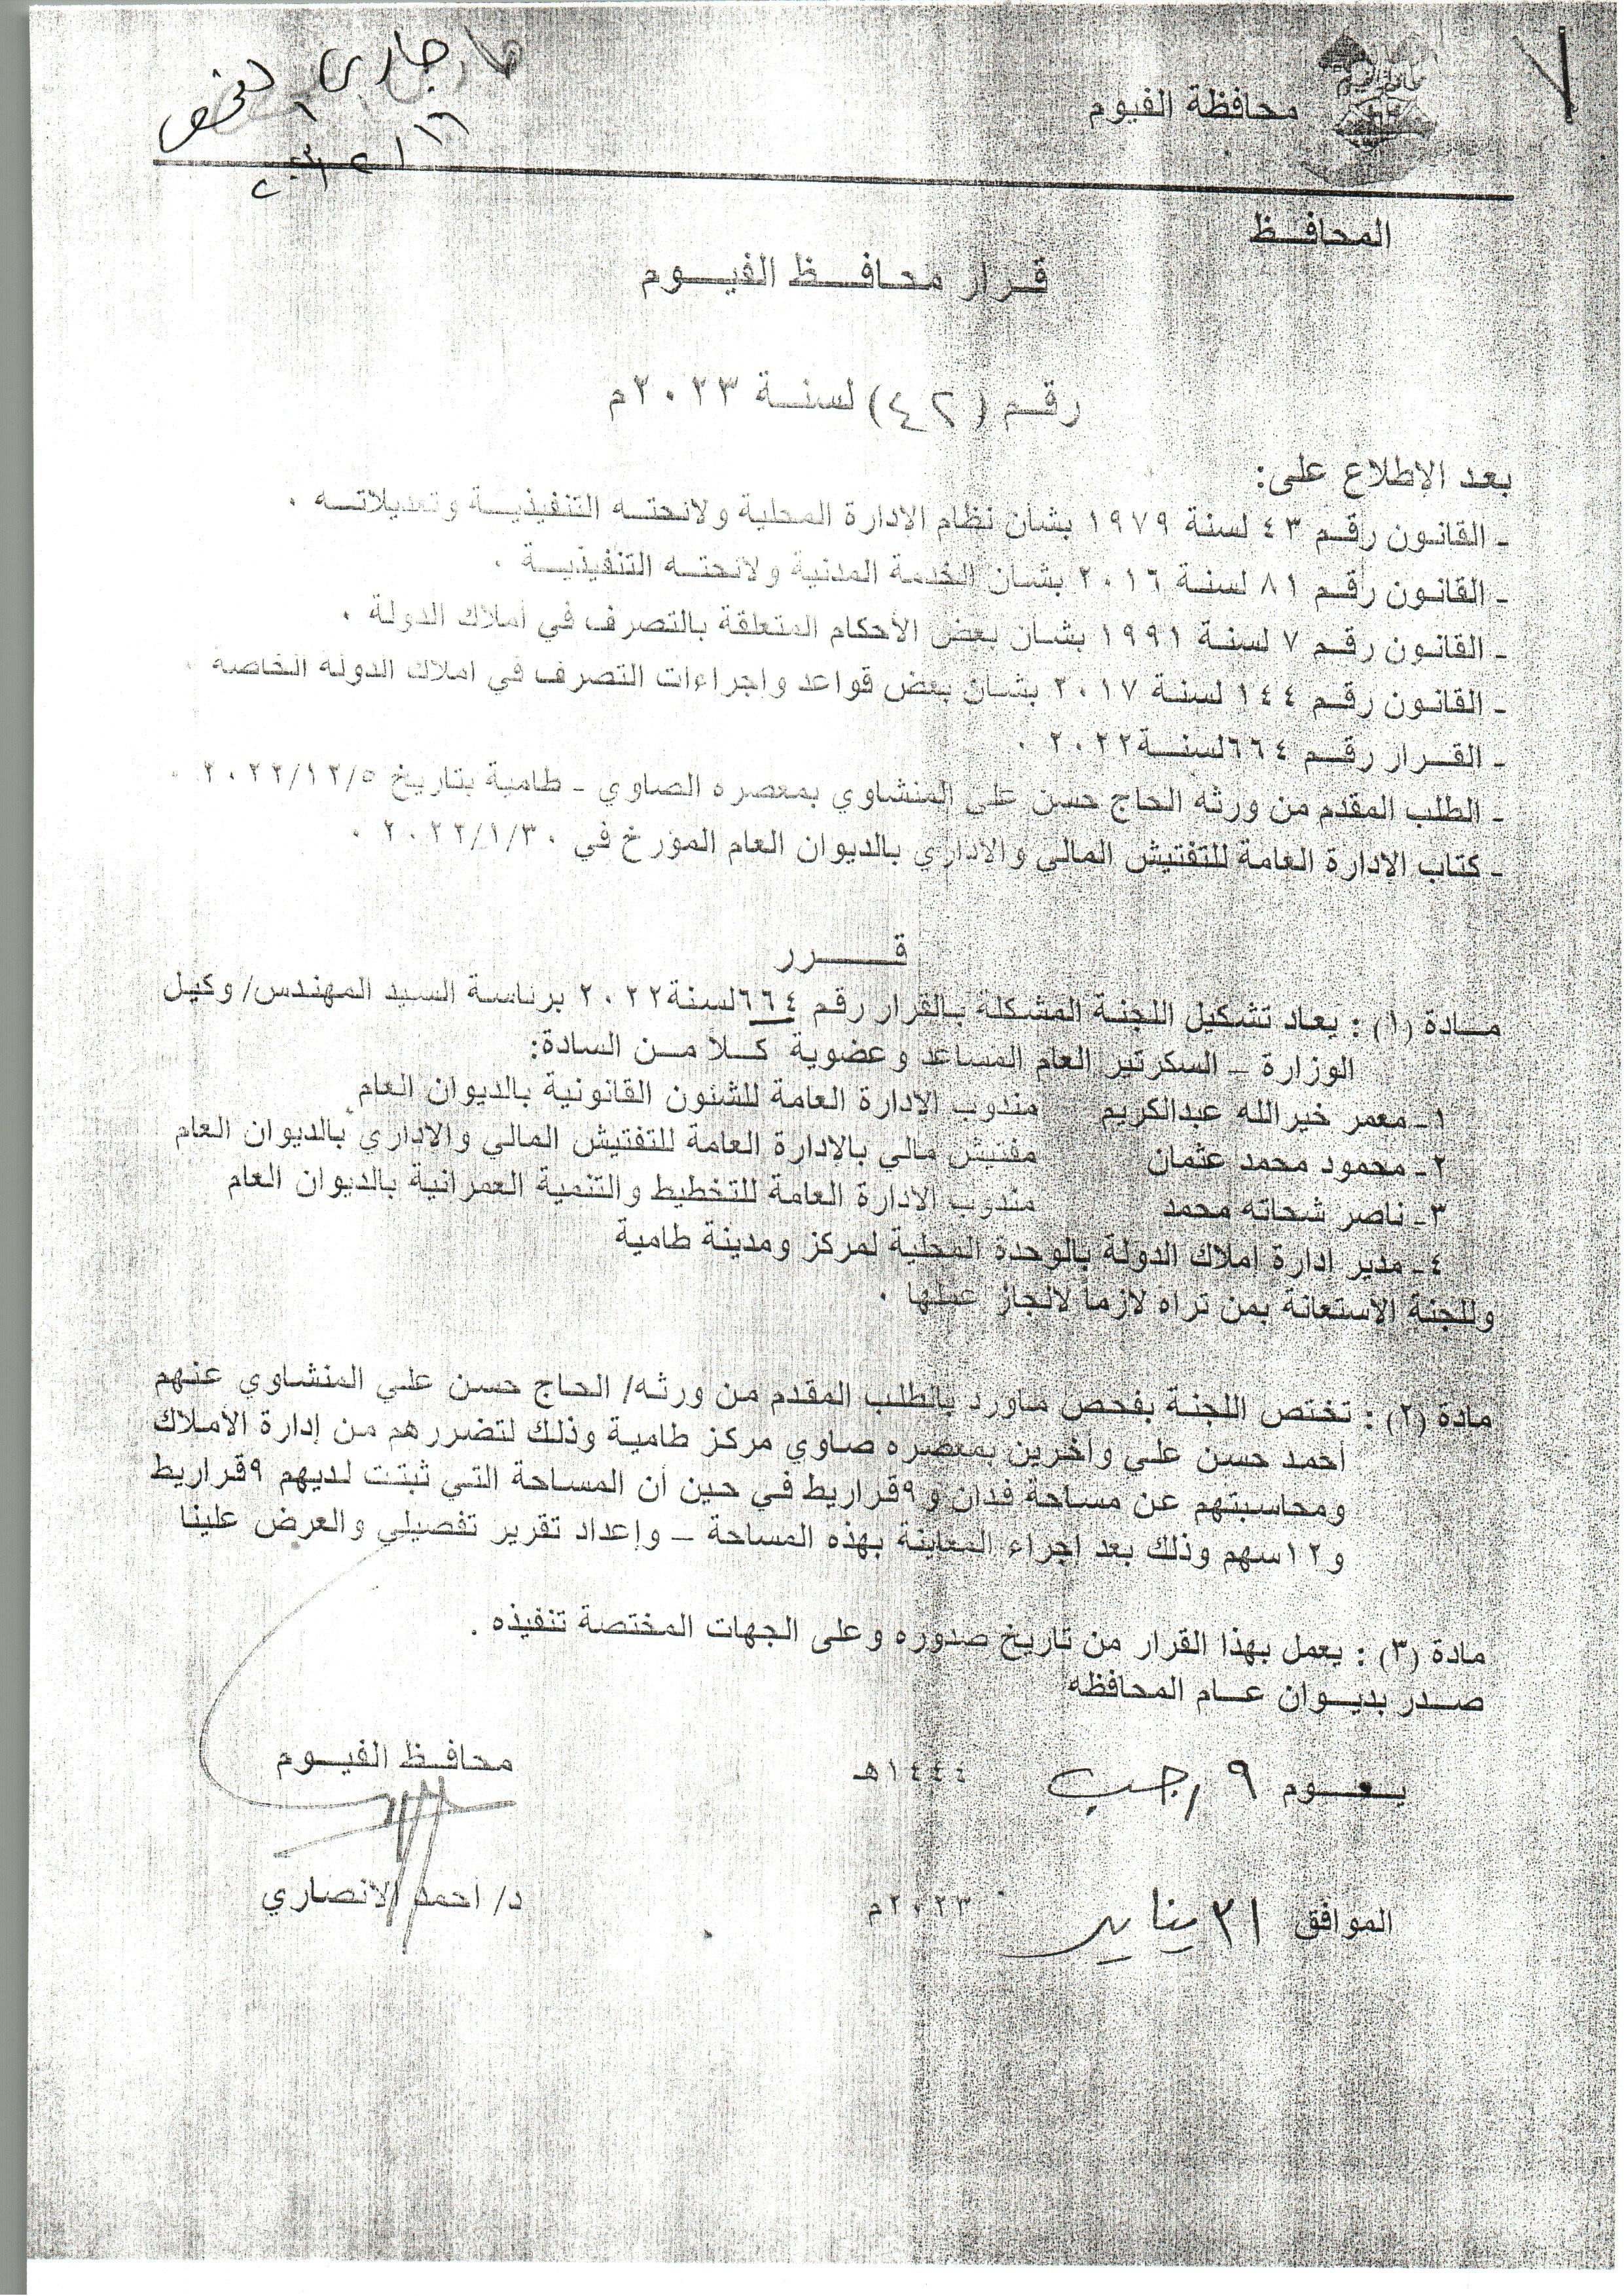 جارى فحص
محافظة الفيوم
المحافـــظ
قــرار محافـــظ الفيـــوم
رقــم (٤٢) لسنــة ٢٠٢٣م
بعد الإطلاع على:
ـ القانـون رقـم ٤٣ لسنة ١٩٧٩ بشأن نظام الإدارة المحلية ولائحتـه التنفيذيــة وتعديلاتــه .
ـ القانـون رقـم ٨١ لسنة ٢٠١٦ بشأن الخدمة المدنية ولائحتـه التنفيذيــة .
ـ القانـون رقـم ٧ لسنة ١٩٩١ بشـأن بعـض الأحكام المتعلقة بالتصرف في أملاك الدولة .
ـ القانـون رقـم ١٤٤ لسنة ٢٠١٧ بشـأن بعض قواعد وإجراءات التصرف في املاك الدوله الخاصة .
ـ القـرار رقـم ٦٦٤لسنــة٢٠٢٢ .
ـ الطلب المقدم من ورثه الحاج حسن على المنشاوي بمعصره الصاوي ـ طامية بتاريخ ٢٠٢٢/١٢/٥ .
ـ كتاب الإدارة العامة للتفتيش المالي والاداري بالديوان العام المؤرخ في ٢٠٢٢/١/٣٠ .
قــــرر
مــادة (١) : يعاد تشكيل اللجنة المشكلة بالقرار رقم ٦٦٤لسنة٢٠٢٢ برئاسة السيد المهندس/ وكيل
الوزارة – السكرتير العام المساعد وعضوية كــلاً مــن السادة:
١ـ معمر خيرالله عبدالكريم مندوب الإدارة العامة للشئون القانونية بالديوان العام
٢ـ محمود محمد عثمان مفتيش مالي بالإدارة العامة للتفتيش المالي والإداري بالديوان العام
٣ـ ناصر شحاته محمد مندوب الإدارة العامة للتخطيط والتنمية العمرانية بالديوان العام
٤ـ مدير ادارة املاك الدولة بالوحدة المحلية لمركز ومدينة طامية
وللجنة الأستعانة بمن تراه لازماً لانجاز عملها .
مادة (٢) : تختص اللجنة بفحص ماورد بالطلب المقدم من ورثه/ الحاج حسن علي المنشاوي عنهم
أحمد حسن علي وأخرين بمعصره صاوي مركز طامية وذلك لتضررهم من إدارة الأملاك
ومحاسبتهم عن مساحة فدان و٩قراريط في حين أن المساحة التي ثبتت لديهم ٩قراريط
و١٢سهم وذلك بعد اجراء المعاينة بهذه المساحة – وإعداد تقرير تفصيلي والعرض علينا
مادة (٣) : يعمل بهذا القرار من تاريخ صدوره وعلى الجهات المختصة تنفيذه .
صــدر بديــوان عــام المحافظه
يــوم ٩ رجب ١٤٤٤هـ
محافــظ الفيــوم
الموافق ٣١ يناير ٢٠٢٣م
د/ أحمد الانصاري